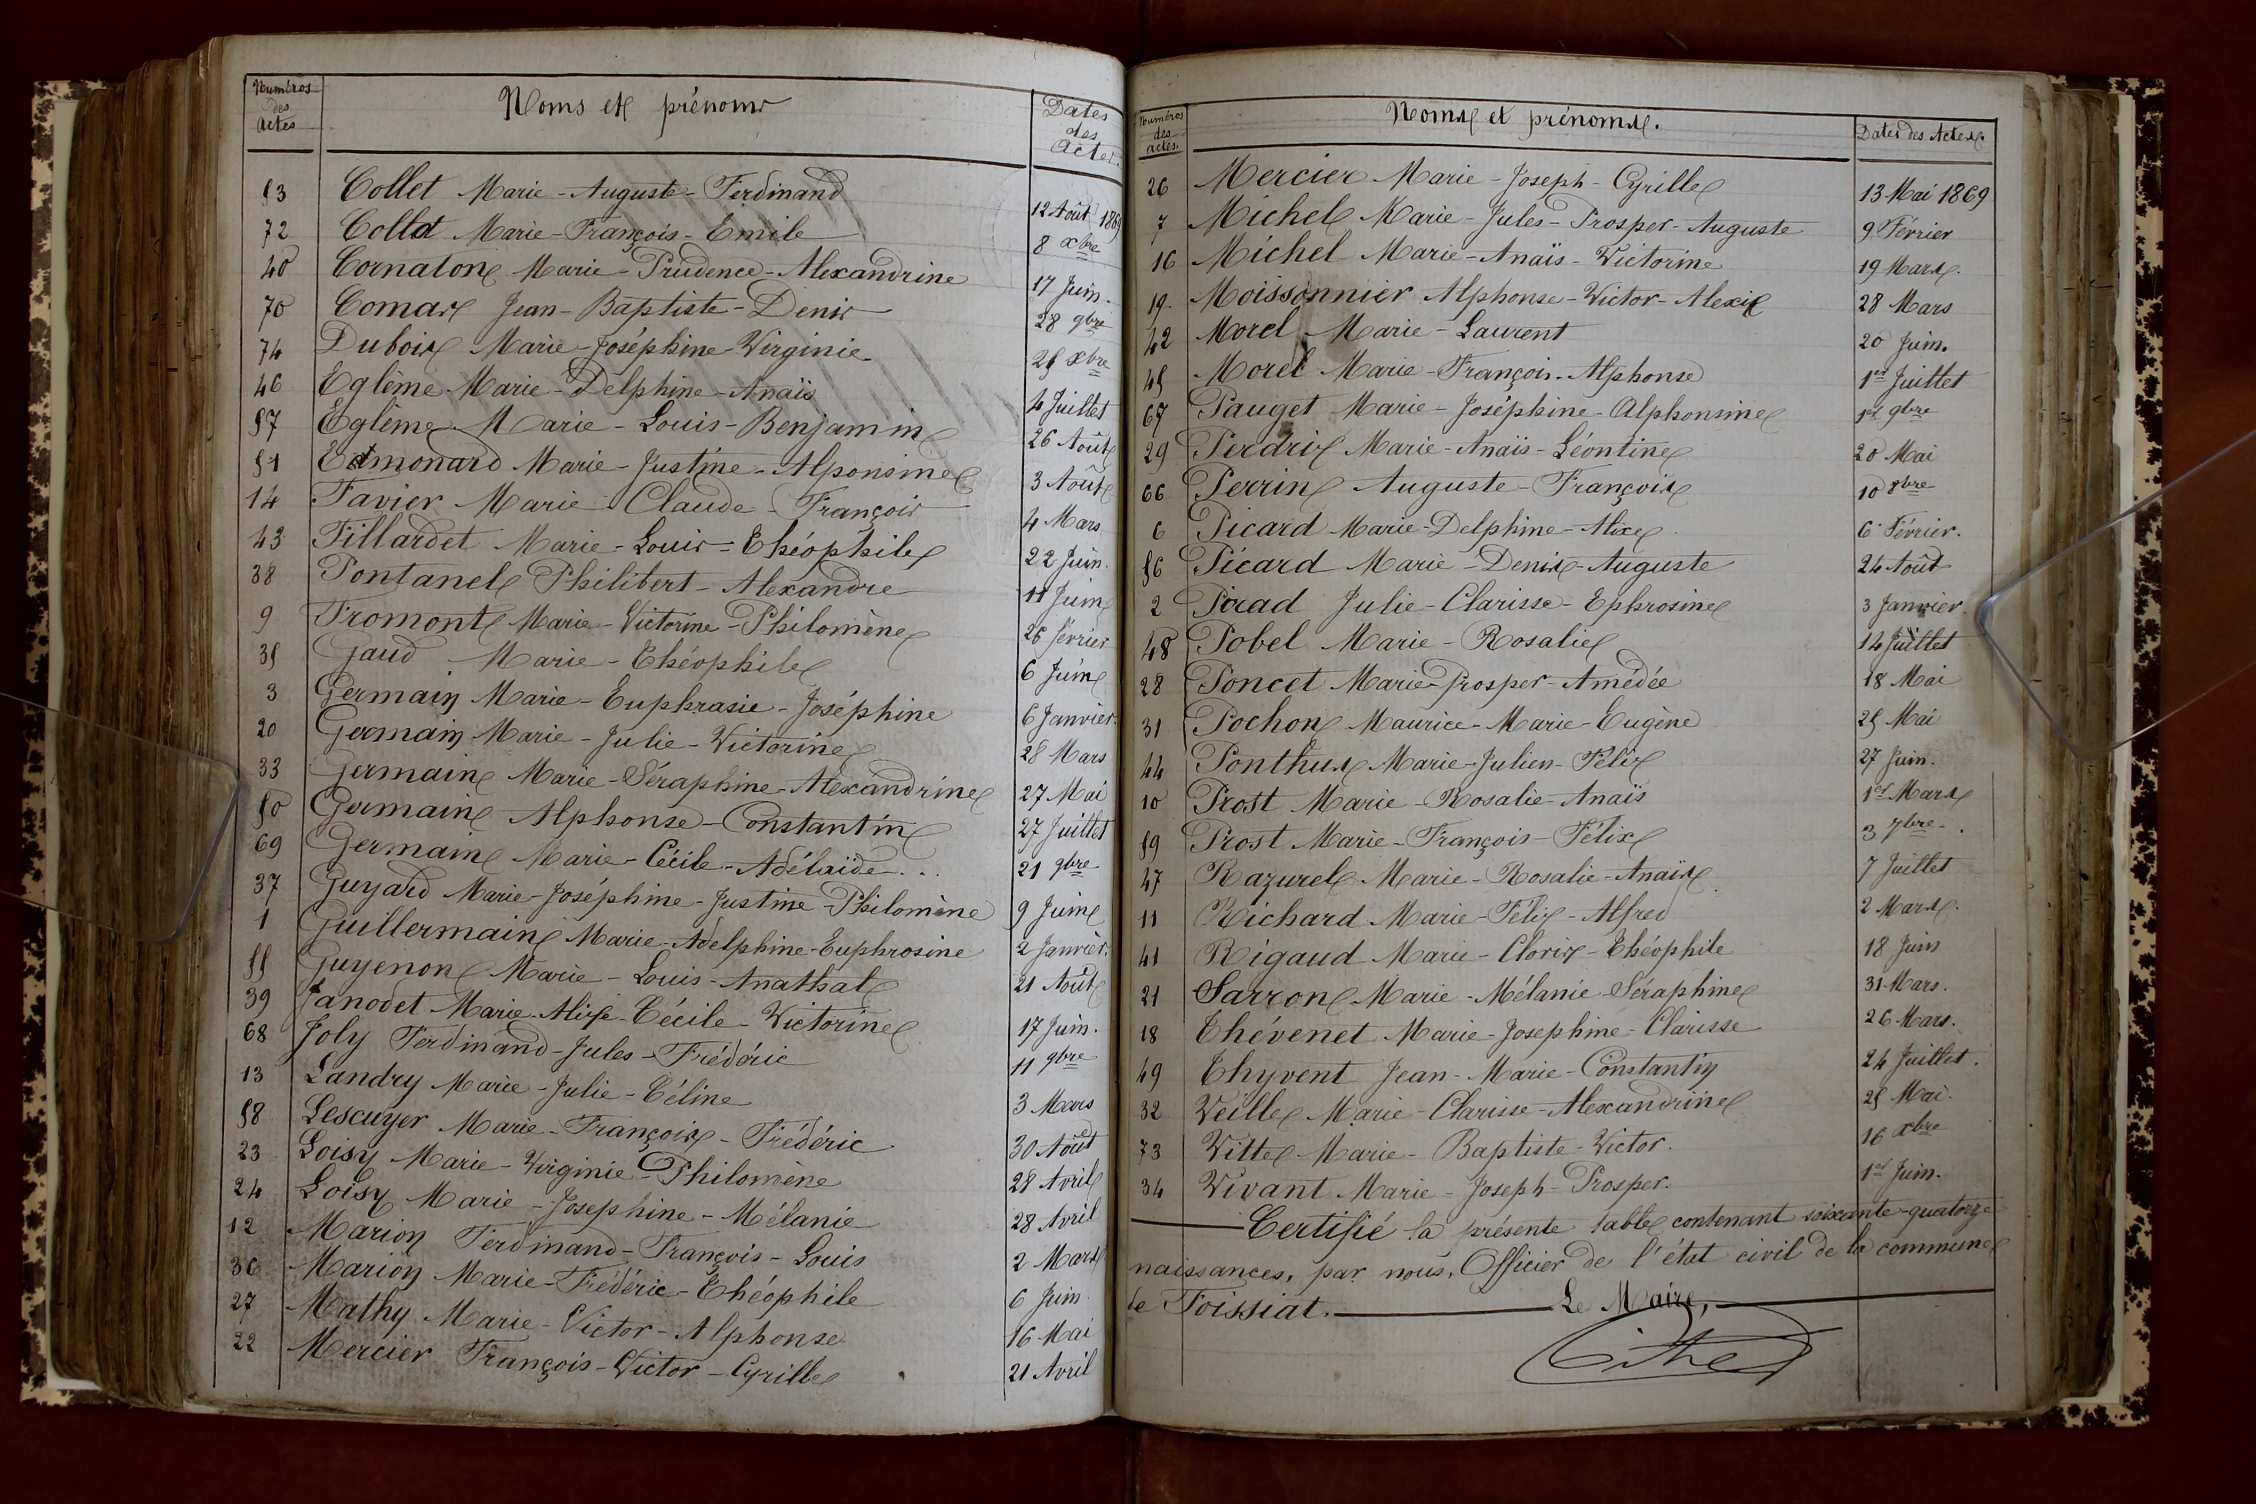 Numéros
des
Actes
Noms et prénoms
Dates
des
Actes.
53 Collet Marie-Auguste-Ferdinand 12 Août 1869
72 Collet Marie-François-Emile 8 xbre
40 Cornaton Marie-Prudence-Alexandrine 17 Juin.
70 Comas Jean-Baptiste-Denis 28 9bre
74 Dubois Marie-Joséphine-Virginie 25 xbre
46 Eglème Marie-Delphine-Anaïs 4 Juillet
57 Eglème Marie-Louis-Benjamin 26 Août
51 Edmonard Marie-Justine-Alponsine 3 Août
14 Favier Marie-Claude-François 4 Mars
43 Fillardet Marie-Louis-Théophile 22 Juin.
38 Fontanel Philibert-Alexandre 11 Juin
9 Fromont Marie-Victorine-Philomène 26 février
35 Gaud Marie-Théophile 6 Juin
3 Germain Marie-Euphrasie-Joséphine 6 Janvier
20 Germain Marie-Julie-Victorine 28 Mars
33 Germain Marie-Séraphine-Alexandrine 27 Mai
50 Germain Alphonse-Constantin 27 Juillet
69 Germain Marie-Cécile-Adélaïde... 21 9bre
37 Guyard Marie-Joséphine-Justine-Philomène 9 Juin
1 Guillermain Marie-Adelphine-Euphrosine 2 Janvier.
55 Guyenon Marie-Louis-Anathal 21 Août
39 Janodet Marie-Alix-Cécile-Victorine 17 Juin.
68 Joly Ferdinand-Jules-Frédéric 11 9bre
13 Landry Marie-Julie-Céline 3 Mars
58 Lescuyer Marie-François-Frédéric 30 Août
23 Loisy Marie-Virginie-Philomène 28 Avril
24 Loisy Marie-Josephine-Mélanie 28 Avril
12 Marion Ferdinand-François-Louis 2 Mars
36 Marion Marie-Frédéric-Théophile 6 Juin
27 Mathy Marie-Victor-Alphonse 16 Mai
22 Mercier François-Victor-Cyrille 21 Avril
Numéros
des
actes.
Noms et prénoms.
Dates des Actes.
26 Mercier Marie-Joseph-Cyrille 13 Mai 1869
7 Michel Marie-Jules-Prosper-Auguste 9 Février
16 Michel Marie-Anaïs-Victorine 19 Mars.
19. Moissonnier Alphonse-Victor-Alexis 28 Mars
42 Morel Marie-Laurent 20 Juin.
45 Morel Marie-François-Alphonse 1er Juillet
67 Pauget Marie-Joséphine-Alphonsine 1er 9bre
29 Perdrix Marie-Anaïs-Léontine 20 Mai
66 Perrin Auguste-François 10 8bre
6 Picard Marie-Delphine-Alix 6 Février.
56 Picard Marie-Denis-Auguste 24 Août
2 Pirad Julie-Clarisse-Ephrosine 3 Janvier
48 Pobel Marie-Rosalie 14 Juillet
28 Poncet Marie-Prosper-Amédée 18 Mai
31 Pochon Maurice-Marie-Eugène 25 Mai
44 Ponthus Marie-Julien-Félix 27 Juin.
10 Prost Marie-Rosalie-Anaïs 1er Mars
59 Prost Marie-François-Félix 3 7bre.
47 Razurel Marie-Rosalie-Anaïs 7 Juillet
11 Richard Marie-Félix-Alfred 2 Mars.
41 Rigaud Marie-Cloris-Théophile 18 Juin
21 Sarron Marie-Mélanie-Séraphine 31 Mars.
18 Thévenet Marie-Josephine-Clarisse 26 Mars.
49 Thyvent Jean-Marie-Constantin 24 Juillet.
32 Veille Marie-Clarisse-Alexandrine 25 Mai.
73 Vitte Marie-Baptiste-Victor. 16 xbre
34 Vivant Marie-Joseph-Prosper. 1er Juin.
Certifié la présente table contenant soixante-quatorze
naissances, par nous, Officier de l'état civil de la commune
de Foissiat. Le Maire,